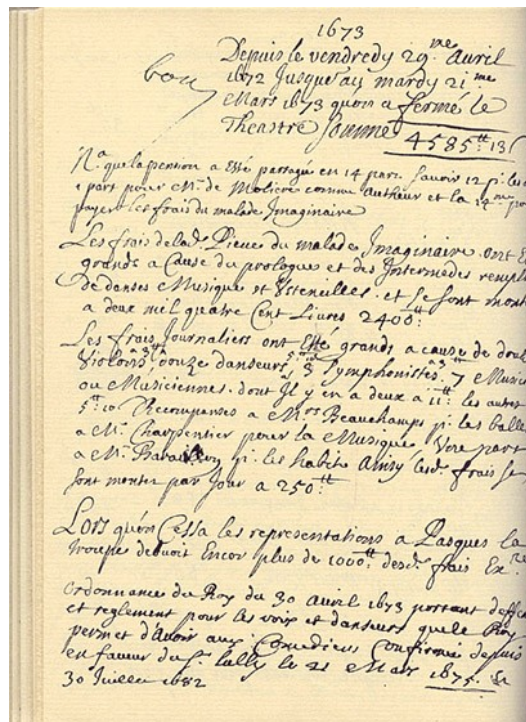 1673
Depuis le vendredy 29.me Auril
1672 Jusque au mardy 21.me
Mars 1673 quon a fermé le
Theastre
4585.tt 13
Na. que la pention a Esté partagée en 14 part. Sauoir 12 p.r les
1 part pour Mr. de Moliere comme Autheur et la 14.me
payer les frais du malade Imaginaire
Les frais de lad. Piece du malade Imaginaire. ont
grands a Cause du prologue et des Intermedes
de danses Musique et Vstencilles. et se sont
a deux mil quatre Cent Liures 2400.tt
Les frais Journaliers ont Esté grands a cause de
Violons, a 3.tt douze danseurs, a 5.tt 10 3 Symphonistes a 3.tt 7
ou Musiciennes. dont Il y en a deux a 11.tt les autres
5.tt 10 Recompenses a M.rs Beauchamps p.r les
a Mr. Charpentier pour la Musique Vne part
a Mr. p.r les habits Ainsy lesd. frais se
sont montez par Jour a 250.tt
Lors quon Cessa les representations a Pasques la
troupe debuoit Encor plus de 1000.tt desd. frais Ex.re
Ordonnance du Roy du 30 Auril 1673 portant
et reglement pour les voix et danseurs que le Roy
permet d'Auoir aux Comediens Confirmée depuis
en faueur du Sr. Lully le 21 Mars 1675. &
30 Juillet 1682